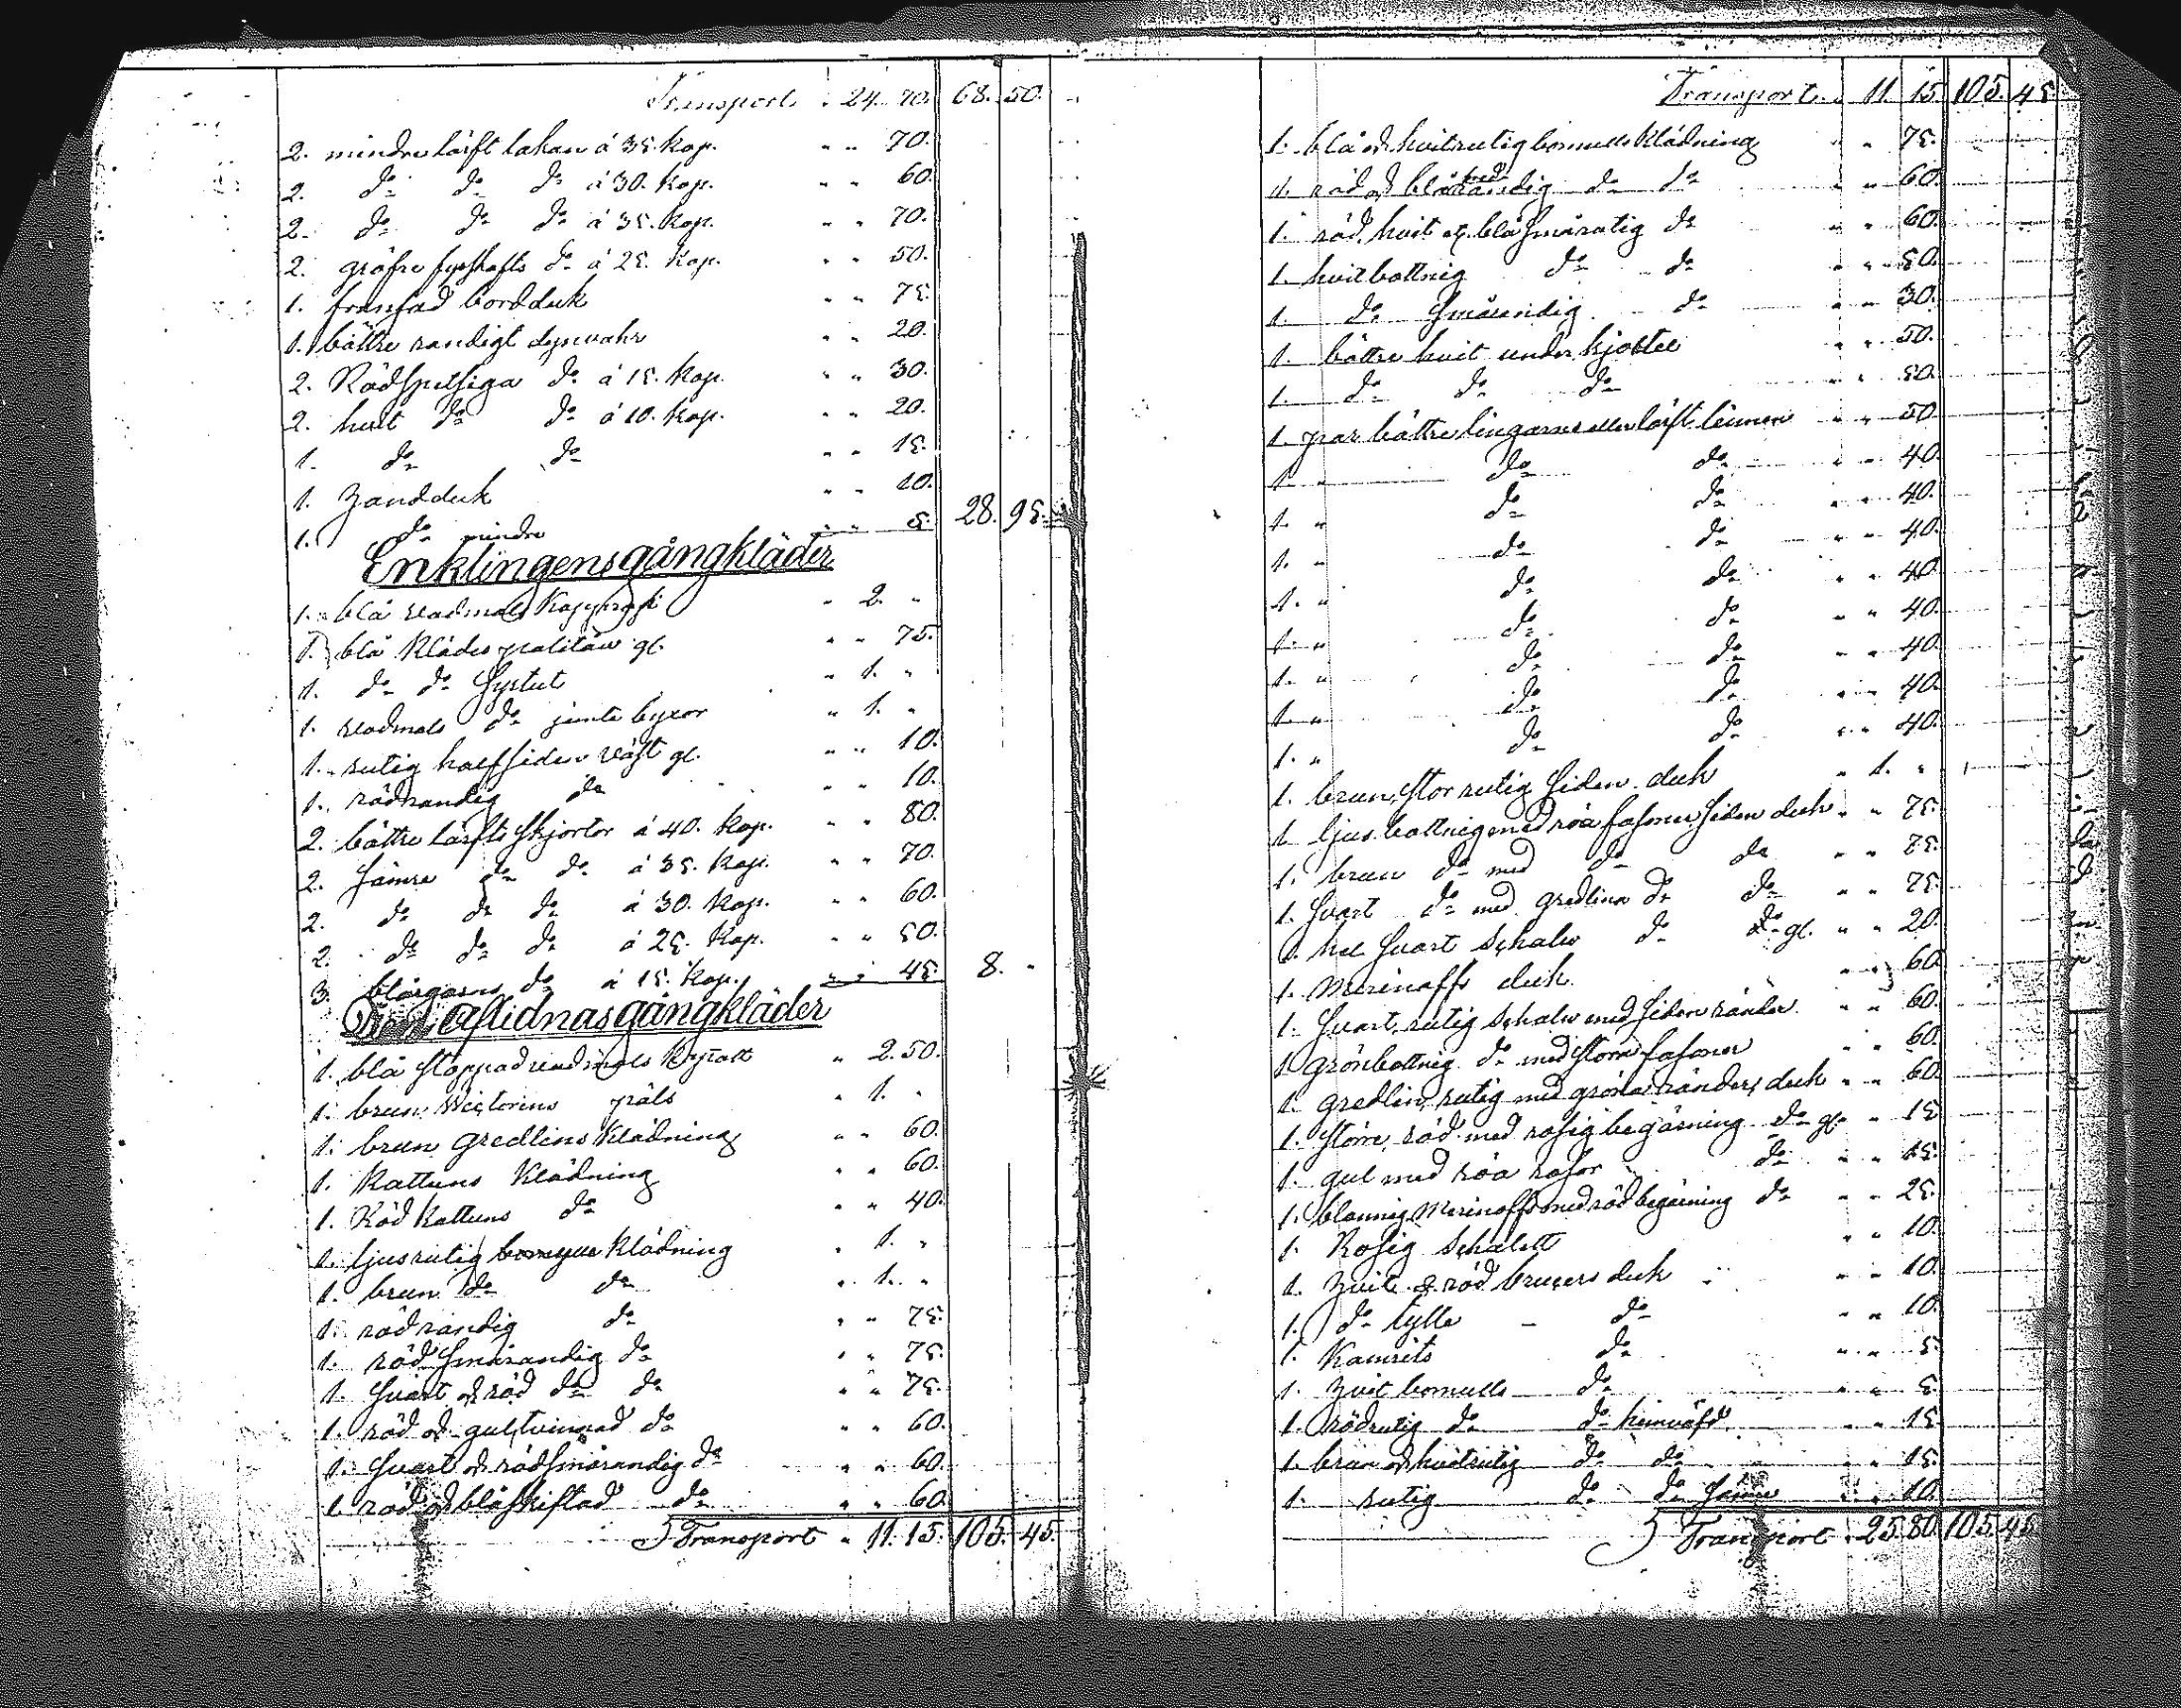 Transport. 24. 70. 68. 50.
2. mindre lärft lakan á 35. Kop. " " 70.
2. do do do á 30. Kop. " " 60.
2. do do do á 35. Kop. " " 70.
2. gröfre fyrskafts do á 25. Kop. " " 50.
1. fransad bordduk " " 75.
1. bättre randigt dynvahr " " 20.
2. Rödspetsiga do á 15. Kop. " " 30.
2. hvit do do á 10. Kop. " " 20.
1. do do " " 15.
1. Handduk " " 10.
1. do mindre " " 5. 28. 95.
Enklingens gångkläder
1. blå vadmals Kapprock " 2. "
1. blå Klädes palitåw gl. " " 75.
1. do do Syrtut " 1. "
1. vadmals do jemte byxor " 1. "
1. rutig halfsiden väst gl. " " 10.
1. rödrandig do " " 10.
2. bättre lärfts skjortor á 40. Kop. " " 80.
2. sämre do do á 35. Kop. " " 70.
2. do do do á 30. Kop. " " 60.
2. do do do á 25. Kop. " " 50.
3. blårgarns do á 15. Kop. " " 45. 8. "
Den Aflidnas gångkläder
1. blå stoppad vadmals " 2. 50.
1. brun Wictorins päls " 1. "
1. brun gredlins Klädning " " 60.
1. Kattuns Klädning " " 60.
1. Röd Kattuns do " " 40.
1. ljusrutig Klädning " 1. "
1. brun do do " 1. "
1. rödrandig do " " 75.
1. röd smårandig do " " 75.
1. Svart och röd do do " " 75.
1. röd och gul tvinnad do " " 60.
1. Svart och röd smårandig do " " 60.
1. röd och blå skiftad do " " 60.
Transport " 11. 15. 105. 45.
Transport. 11. 15. 105. 45.
1. blå och hvitrutig bomulls Klädning " " 75.
1. röd och blå med randig do do " " 60.
1. röd, hvit och blå smårutig do " " 60.
1. hvitbottnig do do " " 50.
1. do smårandig do " " 30.
1. bättre hvit underkjortel " " 50.
1. do do do " " 50.
1. par bättre lingarns eller lärft linnen " " 50.
1. " do do " " 40.
1. " do do " " 40.
1. " do do " " 40.
1. " do do " " 40.
1. " do do " " 40.
1. " do do " " 40.
1. " do do " " 40.
1. " do do " " 40.
1. brun, storrutig siden duk " 1. "
1. ljusbottnig med röa fasoner siden duk " " 75.
1. brun do med do do " " 75.
1. Svart do med gredlina do do " " 75.
1. hel Svart Schalw do do gl. " " 20.
1. Merinoffs duk " " 60.
1. Svart, rutig Schalw med siden ränder " " 60.
1. grönbottnig do med stora fasoner " " 60.
1. gredlin, rutig med gröna ränder, duk " " 60.
1. större, röd med rosig begärning do gl. " 15.
1. gul med röa rosor do " " 15.
1. blommig Merinoffs med röd begärning do " " 25.
1. Rosig Schalett " " 10.
1. Hvit & röd duk " " 10.
1. do tylls do " " 10.
1. Kamrits do " " 5.
1. Hvit bomulls do " " 5.
1. rödrutig do do hemväfd " " 15.
1. brun och hvitrutig do do " " 15.
1. rutig do do sämre " " 10.
Transport " 25. 80. 105. 45.